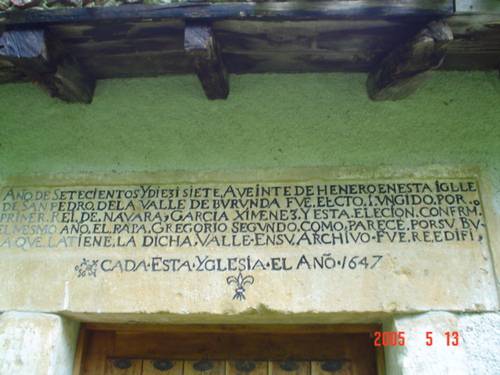 AÑO DE SETECIENTOS Y DIEZ I SIETE, A VEINTE DE HENERO EN ESTA IGLLE
DE SAN PEDRO, DE LA VALLE DE BURUNDA FVE, ELCTO, I, VNGIDO, POR.
PRIMER, REI, DE, NAVARA, GARCIA XIMENEZ, Y ESTA, ELECION, CONFRM.
EL MESMO AÑO, EL, PAPA, GREGORIO SEGVNDO, COMO, PARECE, POR SV, BV
LA QVE, LA TIENE, LA DICHA, VALLE, EN SV, ARCHIVO, FVE, REEDIFI,
CADA·ESTA·YGLESIA·EL AÑO·1647
2005 5 13